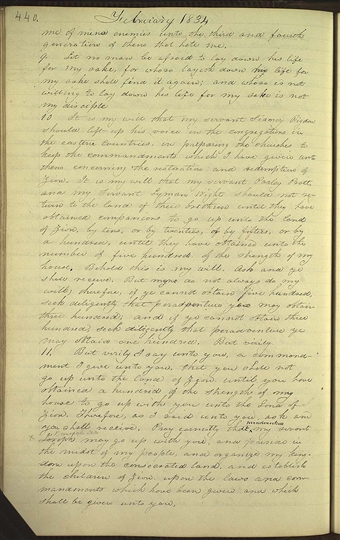 440.
February 1834
me of mine enemies unto the third and fourth
generation of them that hate me.
9. Let no man be afraid to lay down his life
for my sake, for whoso layeth down my life for
my sake shall find it again, and whoso is not
willing to lay down his life for my sake is not
my disciple
10. It is my will that my servant Sidney Rigdon
should lift up his voice in the congregations in
the eastern countries, in preparing the churches to
keep the commandments which I have given unto
them concerning the restoration and redemption of
Zion. It is my will that my servant Parley Pratt,
and my servant Lyman Wight should not re-
turn to the land of their brethren until they have
obtained companions to go up unto the land
of Zion, by tens, or by twenties, or by fifties, or by
a hundred, until they have obtained unto the
number of five hundred of the strength of my
house. Behold this is my will, ask and ye
shall receive. But men do not always do my
will; therefore, if ye cannot obtain five hundred,
seek diligently that peradventure you may obtain
three hundred; and if ye cannot obtain three
hundred, seek diligently that peradventure ye
may obtain one hundred. But verily
11. But verily I say unto you, a command-
ment I give unto you, that you shall not
go up unto the land of Zion until you have
obtained a hundred of the strength of my
house to go up with you unto the land of
Zion. Therefore, as I said unto you, ask and
you shall receive. Pray earnestly that peradventure my servant
Joseph may go up with you, and preside in
the midst of my people, and organize my king-
dom upon the consecrated land, and establish
the children of Zion upon the laws and com-
mandments which have been given and which
shall be given unto you,